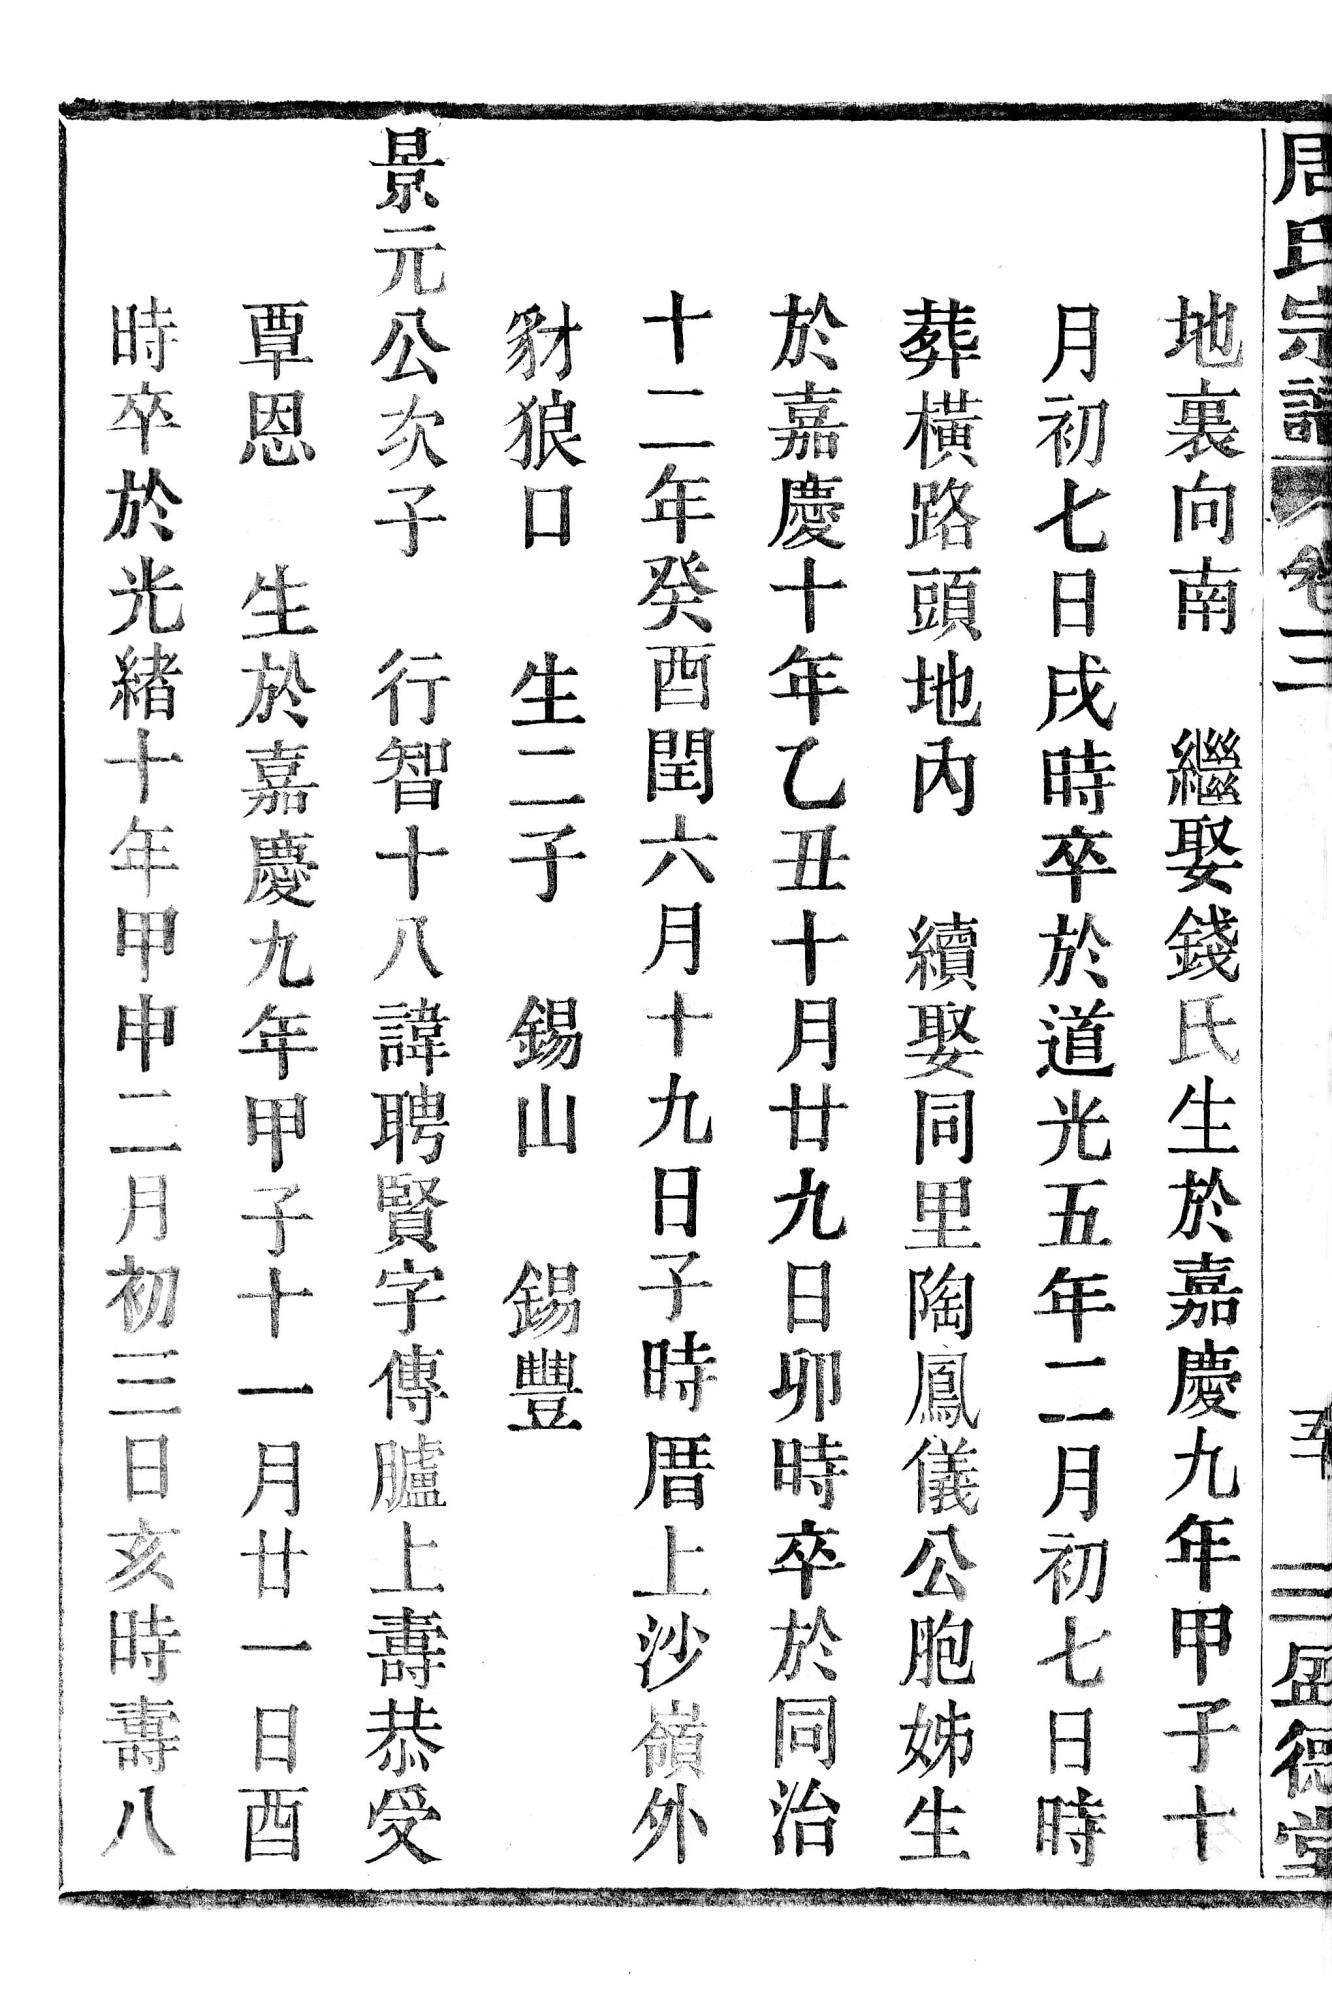 周氏宗譜 卷三 五 三 盛德堂
地裏向南 繼娶錢氏生於嘉慶九年甲子十
月初七日戌時卒於道光五年二月初七日時
葬橫路頭地內 續娶同里陶鳳儀公胞姊生
於嘉慶十年乙丑十月廿九日卯時卒於同治
十二年癸酉閏六月十九日子時厝上沙嶺外
豺狼口 生二子 錫山 錫豐
景元公次子 行智十八諱聘賢字傳臚上壽恭受
覃恩 生於嘉慶九年甲子十一月廿一日酉
時卒於光緒十年甲申二月初三日亥時壽八